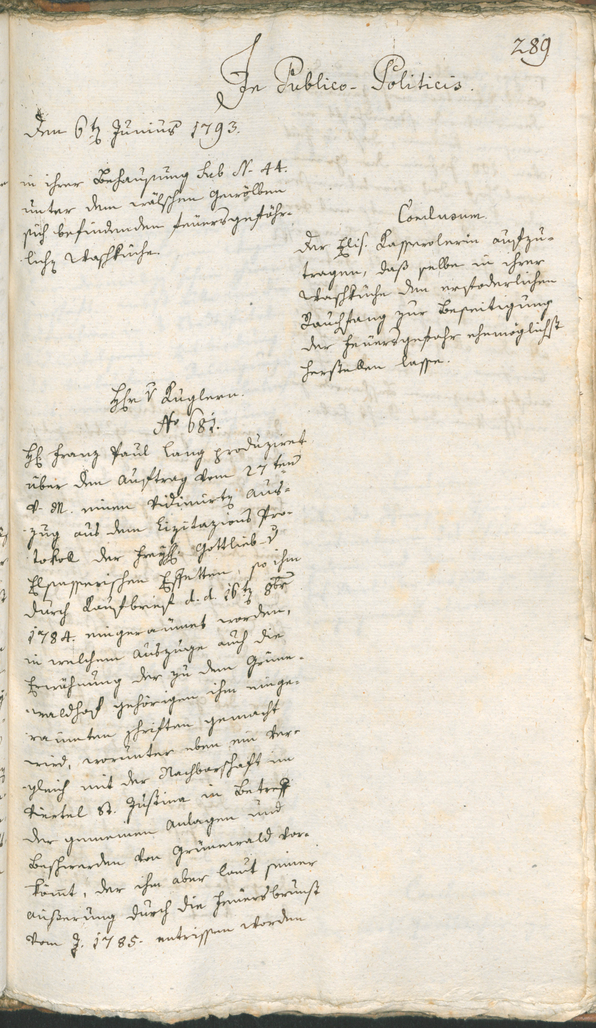 289
In Publico-Politicis.
Den 6tn Junius 1793.
in ihrer Behausung sub N. 44.
unter den wälschen Gewölben
sich befindenden feuersgefähr-
lichn Waschküche.
Conclusum.
Der Elis. Kasserolerin aufzu-
tragen, daß selbe in ihrer
Waschküche den erfoderlichen
Rauchfang zur Beseitigung
der Feuersgefahr ehemöglichst
herstellen lasse.
Hr v Kuglern.
No 681.
H. Franz Paul Lang produziret
über den Auftrag vom 27ten
v. M. einen vidimirtn Aus-
zug aus dem Lizitazions Pro-
tokoll der Gottlieb v
Elsasserischen Effekten, so ihm
durch Kaufbrief d. d. 16tn 8br
1784. eingeraumet worden,
in welchem Auszuge auch die
Erwähnung der zu dem Grüne-
waldhof gehörigen ihm einge-
raumten Schriften gemacht
wird, worunter eben ein Ver-
gleich mit der Nachbarschaft im
Viertel St. Justina in Betreff
der gemeinen Anlagen und
Beschwerden von Grünewald vor-
kömt, der ihm aber laut seiner
äußerung durch die Feuersbrunst
vom J. 1785. entrissen worden